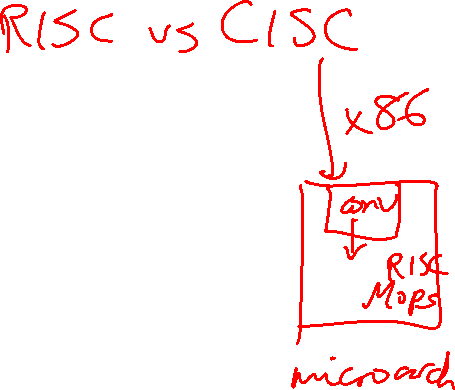 RISC vs CISC
x86
conv
RISC
Mops
microarch